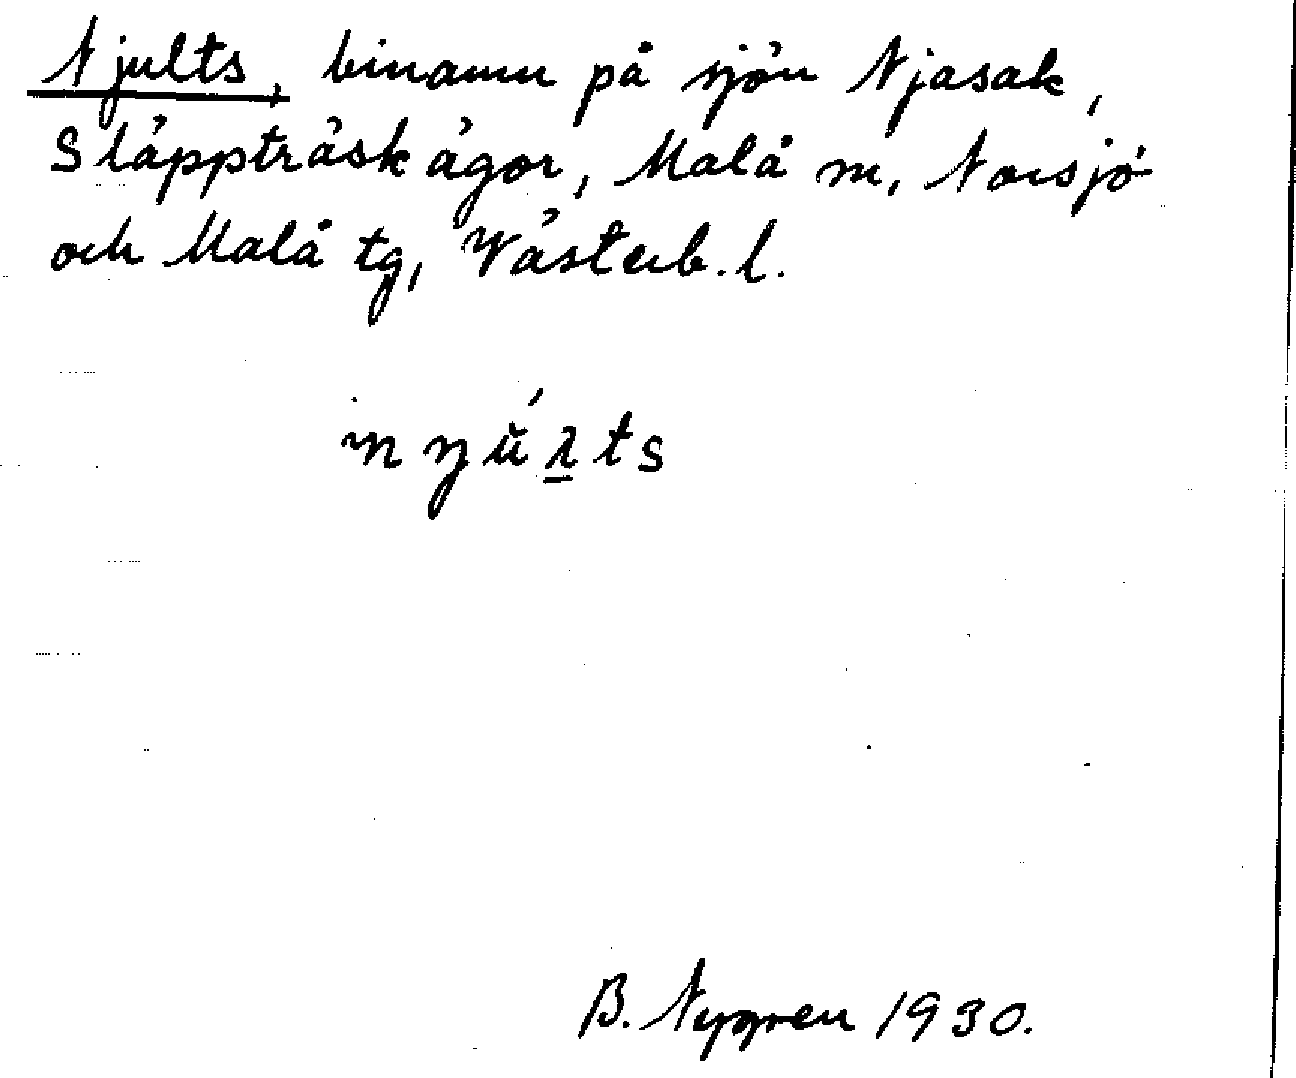 Njults, binamn på sjön Njasak,
Släppträskägor, Malå m, Norsjö
och Malå tg, Västerb. l.
B. Nygren 1930.